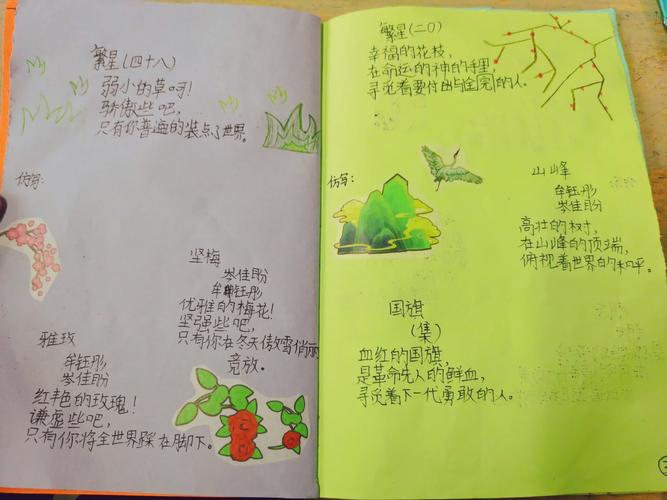 繁星(四十八)
弱小的草呀!
骄傲些吧,
只有你普遍的装点了世界。
仿写:
坚梅
岑佳盼
牟钰彤
优雅的梅花!
坚强些吧,
只有你在冬天傲雪俏丽
竞放。
雅玫
牟钰彤
岑佳盼
红艳的玫瑰!
谦虚些吧,
只有你将全世界踩在脚下。
繁星(二〇)
幸福的花枝,
在命运的神的手里,
寻觅着要付出与全完的人。
仿写:
山峰
牟钰彤
岑佳盼
高壮的树,
在山峰的顶端,
俯视着世界的和平。
国旗
(集)
血红的国旗,
是革命先人的鲜血,
寻觅着下一代勇敢的人。